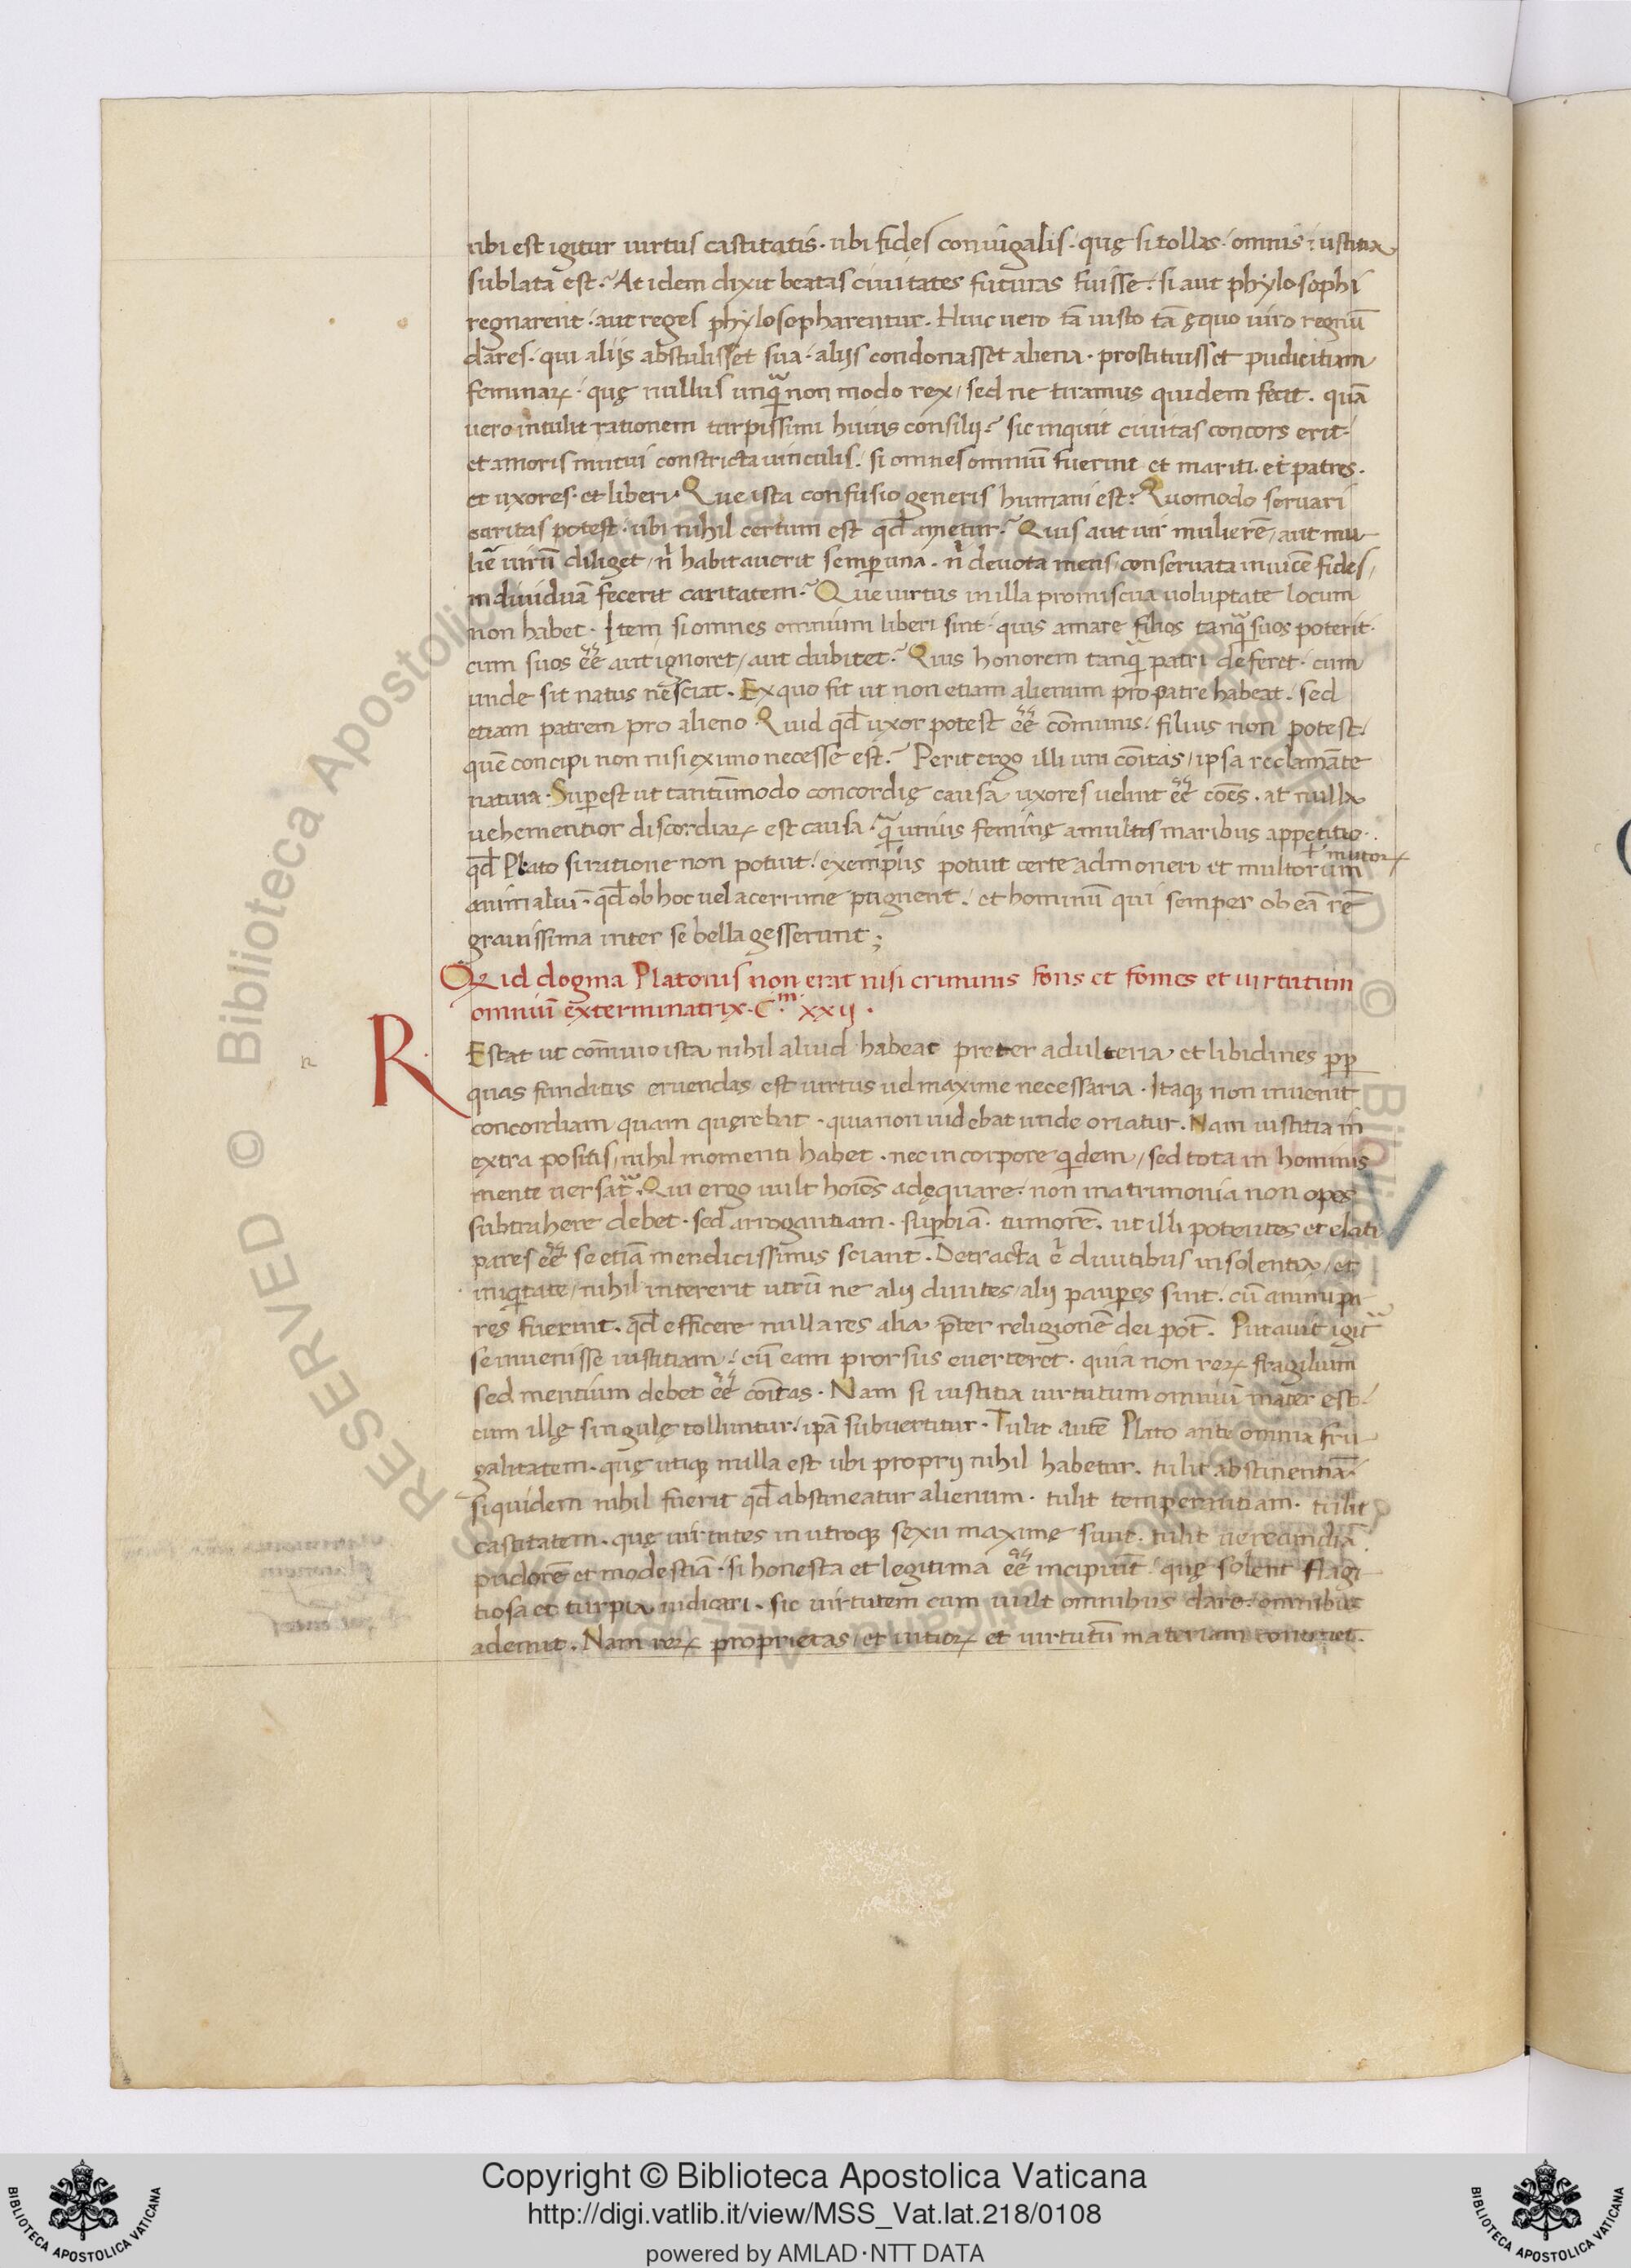 ubi est igitur uirtus castitatis · ubi fides coniugalis · quę si tollas · omnis iustitia
sublata est? At idem dixit beatas ciuitates futuras fuisse · si aut phylosophi
regnarent · aut reges phylosopharentur. Huic uero tā iusto tā ęquo uiro regnū
dares · qui aliis abstulisset sua · aliis condonasset aliena · prostituisset pudicitiam
feminaꝝ · quę nullus unꝗᷓ non modo rex / sed ne tirannus quidem fecit. quā
uero intulit rationem turpissimi huius consilii? sic inquit ciuitas concors erit
et amoris mutui constricta uinculis / si omnes omniū fuerint et mariti et patres ·
et uxores · et liberi. Que ista confusio generis humani est? Quomodo seruari
caritas potest · ubi nihil certum est qđ ametur? Quis aut uir mulierē / aut mu-
liē uirū diliget / ñ habitauerit semꝑ una · ñ deuota mens / conseruata inuicē fides /
indiuiduā fecerit caritatem? Que uirtus in illa promiscua uoluptate locum
non habet · Item si omnes omnium liberi sint · quis amare filios tanꝗᷓ suos poterit ·
cum suos eē aut ignoret / aut dubitet? Quis honorem tanꝗᷓ patri deferet · cum
unde sit natus nesciat. Ex quo fit ut non etiam alienum pro patre habeat · sed
etiam patrem pro alieno Quid qđ uxor potest eē cōmunis · filius non potest ·
quē concipi non nisi ex uno necesse est? Perit ergo illi uni cōītas / ipsa reclamāte
natura · Suꝑest ut tantūmodo concordię causa uxores uelint eē cōēs · at nulla
uehementior discordiaꝝ est causa · ꝗᷓ unius feminę a multis maribus appetitio ·
qđ Plato si ratione non potuit / exemplis potuit certe admoneri et multorum
+ mutoꝝ
animaliū · qđ ob hoc uel acerrime pugnent / et hominū qui semper ob eā rē
grauissima inter se bella gesserunt;
Quid dogma Platonis non erat nisi criminis fons et fomes et uirtutum
omniū exterminatrix · C.m xxii ·
R
Estat ut cōmunio ista nihil aliud habeat preter adulteria et libidines ꝓꝑ
quas funditus eruendas est uirtus uel maxime necessaria · Itaqꝫ non inuenit
concordiam quam quęrebat · quia non uidebat unde oriatur. Nam iustitia in
extra positis / nihil momenti habet · nec in corpore ꝗdem / sed tota in hominis
mente uersat̃. Qui ergo uult hoīes adęquare · non matrimonia non opes
subtrahere debet · sed arrogantiam · suꝑbiā · tumorē · ut illi potentes et elati
pares eē se etiā mendicissimis sciant. Detracta ē diuitibus insolentia / et
iniꝗtate / nihil intererit utrū ne alii diuites / alii pauꝑes sint · cū animi pa
res fuerint · qđ efficere nulla res alia p̄ter religionē dei pōt. Putauit igit̃
se inuenisse iustitiam · cū eam prorsus euerteret · quia non reꝝ fragilium
sed mentium debet eē cōītas · Nam si iustitia uirtutum omniū mater est ·
cum illę singulę tolluntur / ip̄a subuertitur · Tulit autē Plato ante omnia fru-
galitatem · quę utiqꝫ nulla est ubi proprii nihil habetur · tulit abstinentiā ·
siquidem nihil fuerit qđ abstineatur alienum · tulit temperantiam · tulit
castitatem · quę uirtutes in utroqꝫ sexu maxime sunt · tulit uerecundiā
pudorē et modestiā · si honesta et legitima eē incipiūt · quę solent flagi-
tiosa et turpia iudicari · sic uirtutem cum uult omnibus dare · omnibus
ademit. Nam reꝝ proprietas / et uitioꝝ et uirtutū materiam continet.
Copyright © Biblioteca Apostolica Vaticana
http://digi.vatlib.it/view/MSS_Vat.lat.218/0108
powered by AMLAD·NTT DATA
BIBLIOTECA APOSTOLICA VATICANA
BIBLIOTECA APOSTOLICA VATICANA